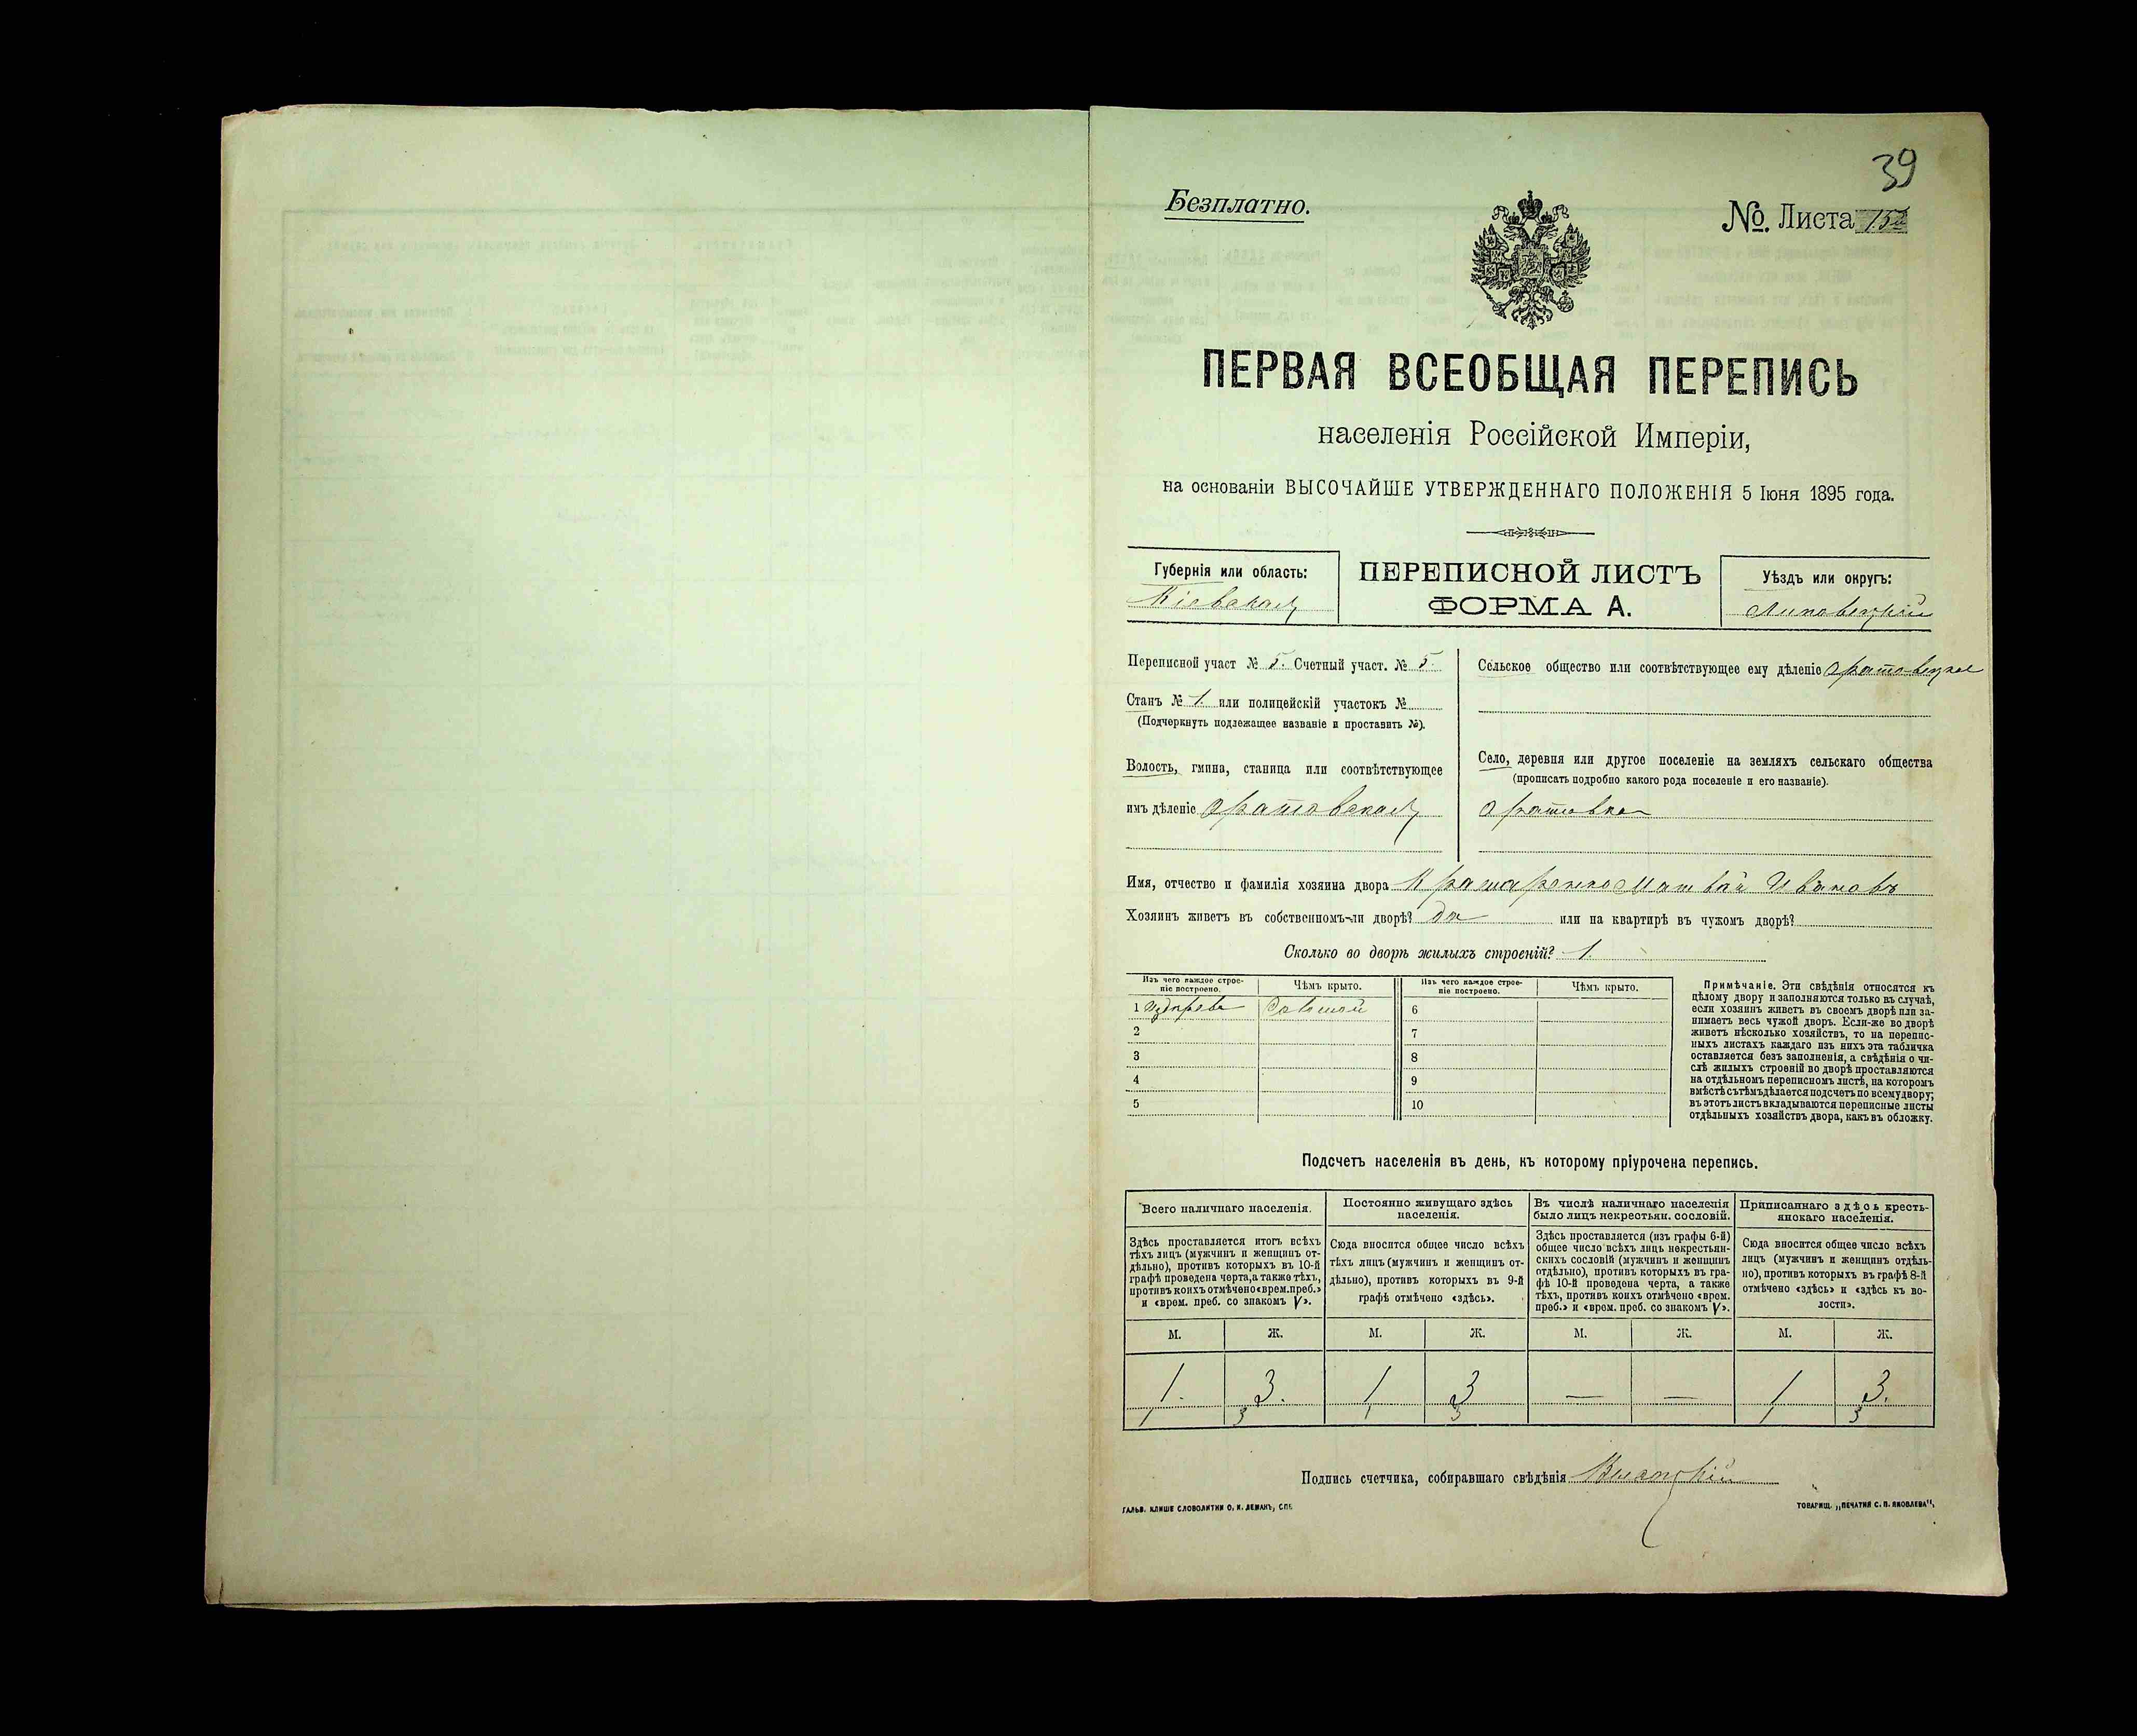 39
Безплатно.
№. Листа
ПЕРВАЯ ВСЕОБЩАЯ ПЕРЕПИСЬ
населенія Россійской Имперіи,
на основаніи ВЫСОЧАЙШЕ УТВЕРЖДЕННАГО ПОЛОЖЕНІЯ 5 Іюня 1895 года.
Губернія или область:
Кіевская
ПЕРЕПИСНОЙ ЛИСТЪ
ФОРМА А.
Уѣздъ или округъ:
Липовецкій
Переписной участ № 5. Счетный участ. № 5.
Станъ № 1. или полицейскій участокъ №
(Подчеркнуть подлежащее названіе и проставить №).
Волость, гмина, станица или соотвѣтствующее
имъ дѣленіе Оратовская
Сельское общество или соотвѣтствующее ему дѣленіе Оратовское
Село, деревня или другое поселеніе на земляхъ сельскаго общества
(прописать подробно какого рода поселеніе и его названіе).
Оратовка
Имя, отчество и фамилія хозяина двора Матвѣй Ивановъ
Хозяинъ живетъ въ собственномъ-ли дворѣ? да или на квартирѣ въ чужомъ дворѣ?
Сколько во дворѣ жилыхъ строеній? 1.
Изъ чего каждое строе-
ніе построено.
Чѣмъ крыто.
Изъ чего каждое строе-
ніе построено.
Чѣмъ крыто.
1 Соломой 6
2 7
3 8
4 9
5 10
Примѣчаніе. Эти свѣдѣнія относятся къ
цѣлому двору и заполняются только въ случаѣ,
если хозяинъ живетъ въ своемъ дворѣ или за-
нимаетъ весь чужой дворъ. Если-же во дворѣ
живетъ нѣсколько хозяйствъ, то на перепис-
ныхъ листахъ каждаго изъ нихъ эта табличка
оставляется безъ заполненія, а свѣдѣнія о чи-
слѣ жилыхъ строеній во дворѣ проставляются
на отдѣльномъ переписномъ листѣ, на которомъ
вмѣстѣ съ тѣмъ дѣлается подсчетъ по всему двору;
въ этотъ листъ вкладываются переписные листы
отдѣльныхъ хозяйствъ двора, какъ въ обложку.
Подсчетъ населенія въ день, къ которому пріурочена перепись.
Всего наличнаго населенія.
Постоянно живущаго здѣсь
населенія.
Въ числѣ наличнаго населенія
было лицъ некрестьян. сословій.
Приписаннаго здѣсь кресть-
янскаго населенія.
Здѣсь проставляется итогъ всѣхъ
тѣхъ лицъ (мужчинъ и женщинъ от-
дѣльно), противъ которыхъ въ 10-й
графѣ проведена черта, а также тѣхъ,
противъ коихъ отмѣчено «врем. преб.»
и «врем. преб. со знакомъ V».
Сюда вносится общее число всѣхъ
тѣхъ лицъ (мужчинъ и женщинъ от-
дѣльно), противъ которыхъ въ 9-й
графѣ отмѣчено «здѣсь».
Здѣсь проставляется (изъ графы 6-й)
общее число всѣхъ лицъ некрестьян-
скихъ сословій (мужчинъ и женщинъ
отдѣльно), противъ которыхъ въ гра-
фѣ 10-й проведена черта, а также
тѣхъ, противъ коихъ отмѣчено «врем.
преб.» и «врем. преб. со знакомъ V».
Сюда вносится общее число всѣхъ
лицъ (мужчинъ и женщинъ отдѣль-
но), противъ которыхъ въ графѣ 8-й
отмѣчено «здѣсь» и «здѣсь къ во-
лости».
М. Ж. М. Ж. М. Ж. М. Ж.
1. 3. 1 3 — — 1 3.
1 3 1 3 1 3
Подпись счетчика, собиравшаго свѣдѣнія
ГАЛЬВ. КЛИШЕ СЛОВОЛИТНИ О. И. ЛЕМАНЪ, СПБ.
ТОВАРИЩ. „ПЕЧАТНЯ С. П. ЯКОВЛЕВА“,